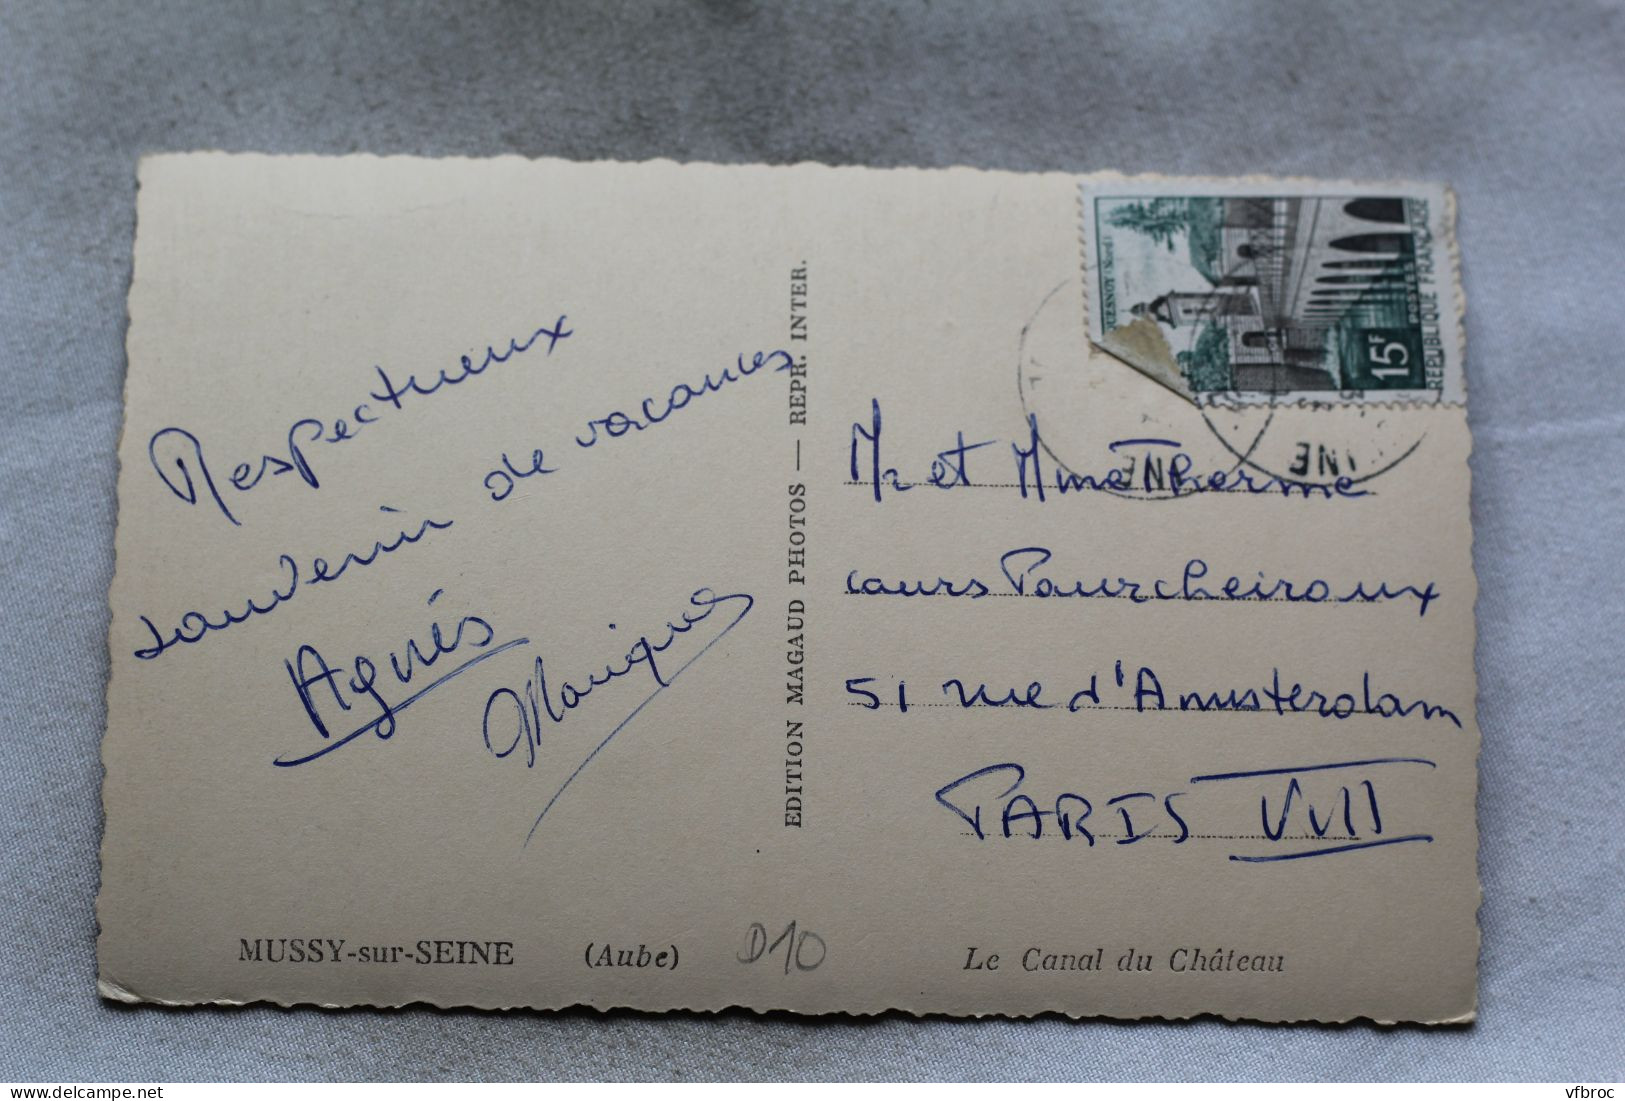 Respectueux
souvenir de vacances
Agnès
Monique
EDITION MAGAUD PHOTOS — REPR. INTER.
QUESNOY (Nord)
15F
POSTES
REPUBLIQUE FRANÇAISE
INE
INE
Mr et Mme Therme
cours Pourcheiroux
51 rue d'Amsterdam
PARIS VIII
MUSSY-sur-SEINE (Aube)
D10
Le Canal du Château
vfbroc